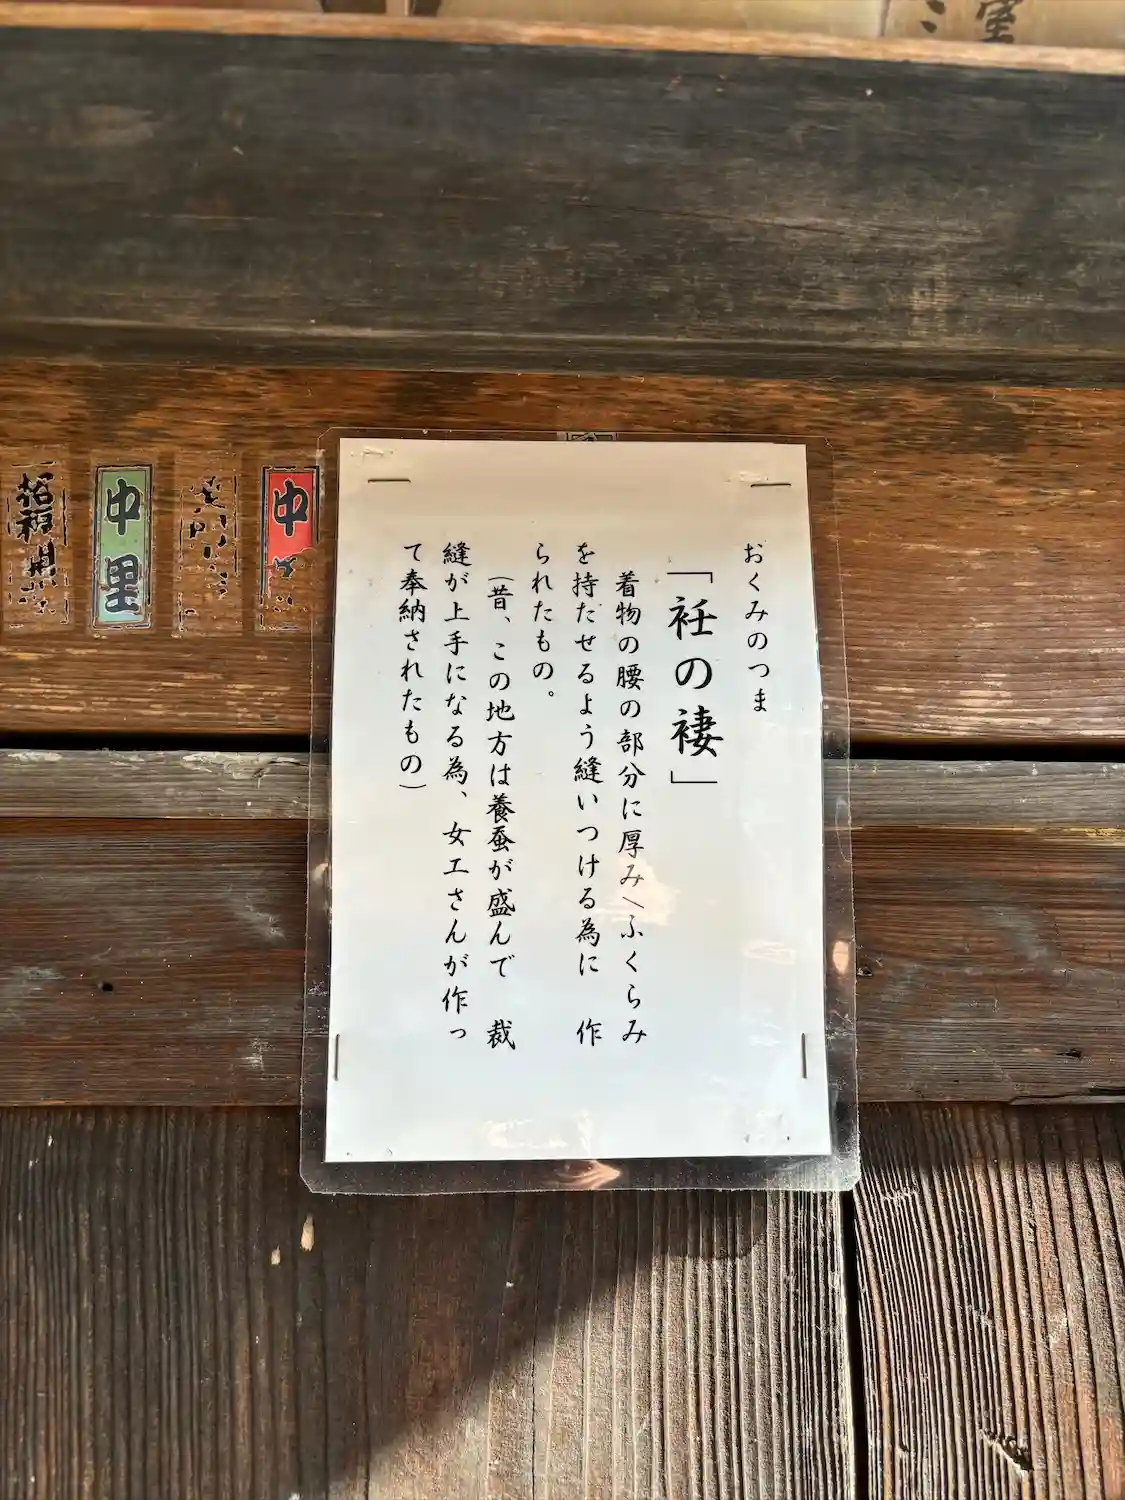 おくみのつま
「衽の褄」
着物の腰の部分に厚み\ふくらみ
を持たせるよう縫いつける為に 作
られたもの。
(昔、この地方は養蚕が盛んで 裁
縫が上手になる為、女工さんが作っ
て奉納されたもの)
中
中里